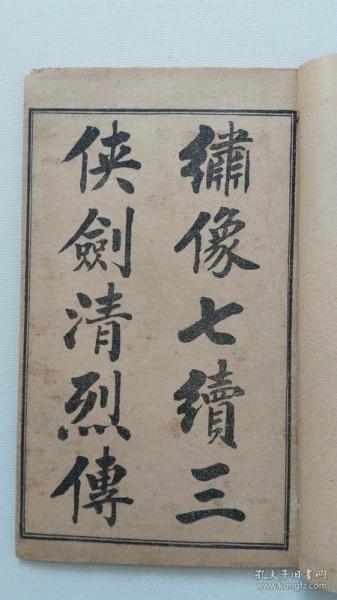 繡像七續三
俠劍清烈傳
孔夫子旧书网
www.kongfz.com